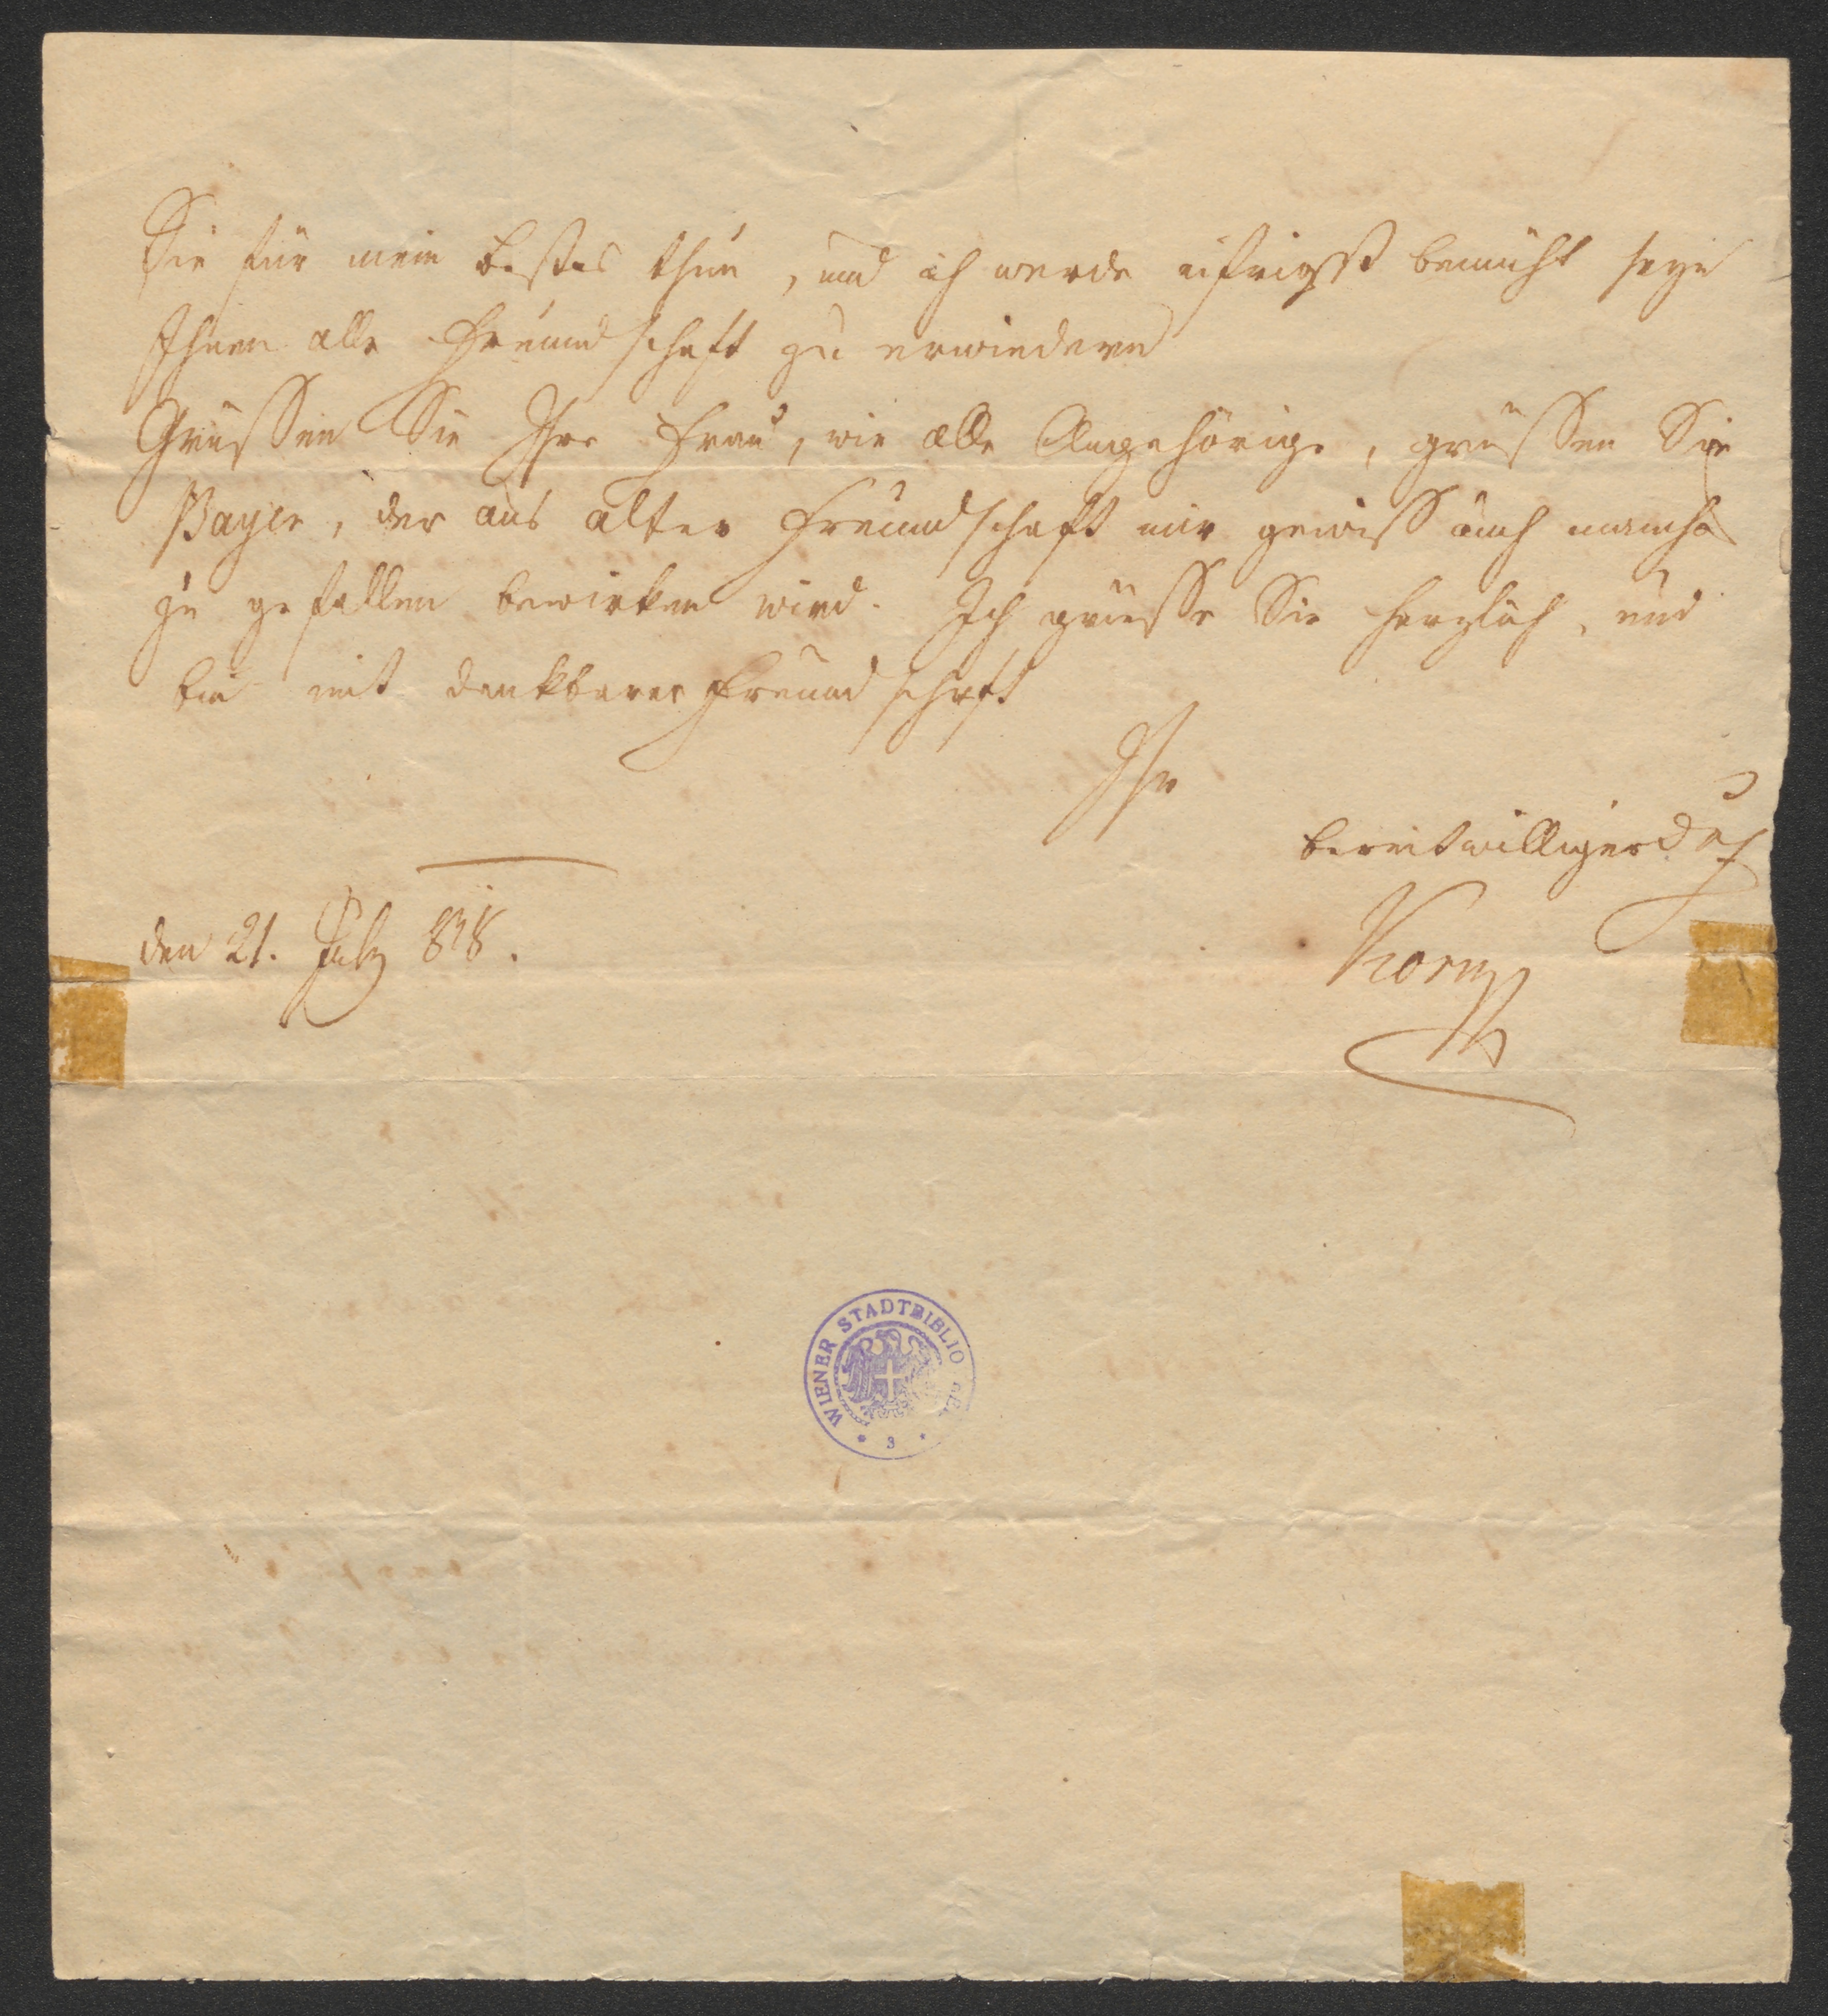 Sie für mein Bestes thun, und ich werde eifrigst bemüht seyn
Ihnen alle Freundschaft zu erwiedern
Grüssen Sie Ihre Frau, wie alle Angehörige, grüssen Sie
Payer, der aus alter Freundschaft mir gewiss auch manches
zu gefallen bewirken wird. Ich grüsse Sie herzlich, und
bin mit dankbarer Freundschaft
Ihr
bereitwilliger
Korn
den 21. July 818.
WIENER STADTBIBLIO
3